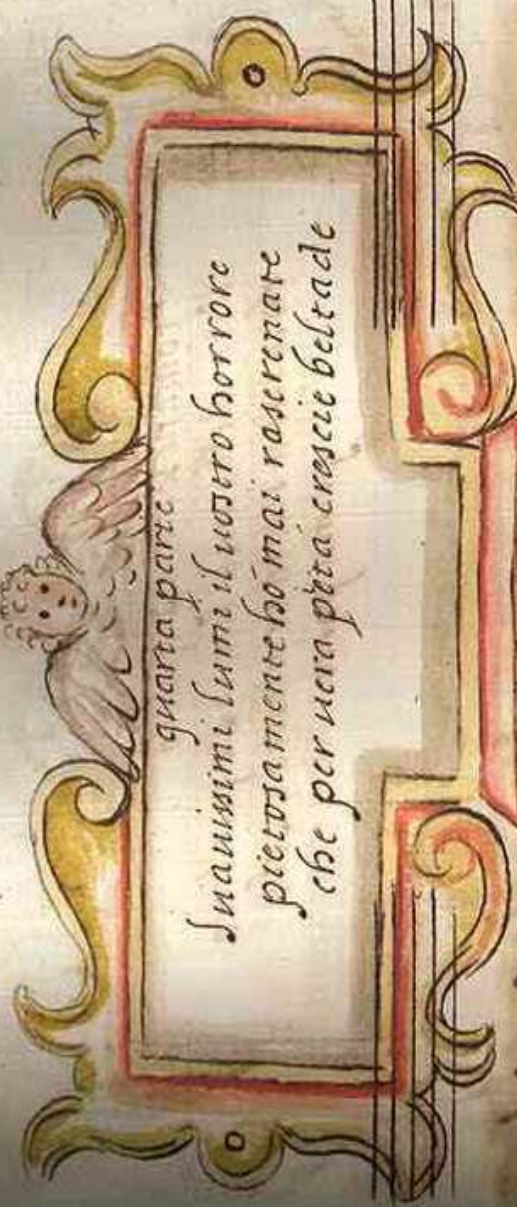 quarta parte
Suauissimi lumi il uostro horrore
pietosamente hó mai raserenate
che per uera pìtá crescie beltade